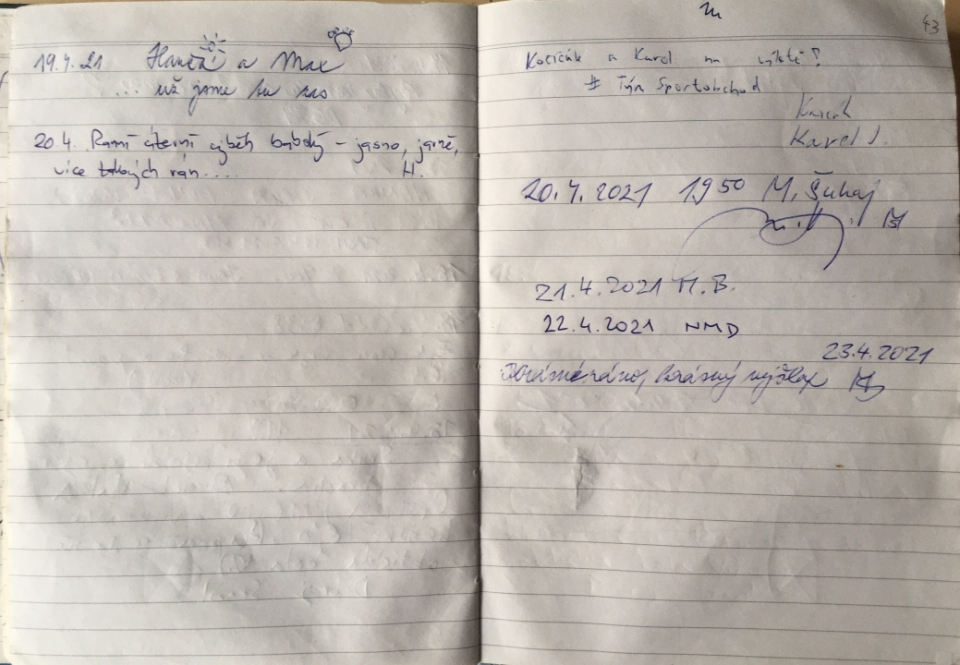 19.4.21 Hanča a Max
... už jsme tu zas
20.4. Ranní úterní výběh babdý – jasno, jarně,
více takových rán.... H.
43
Kocičák a Karel na výletě!
# Tým Sportobchod
Karel J.
20.4.2021 1950 M. Šuhaj
21.4.2021 M.B.
22.4.2021 NMD
23.4.2021
Krásné ráno, krásný výšlap